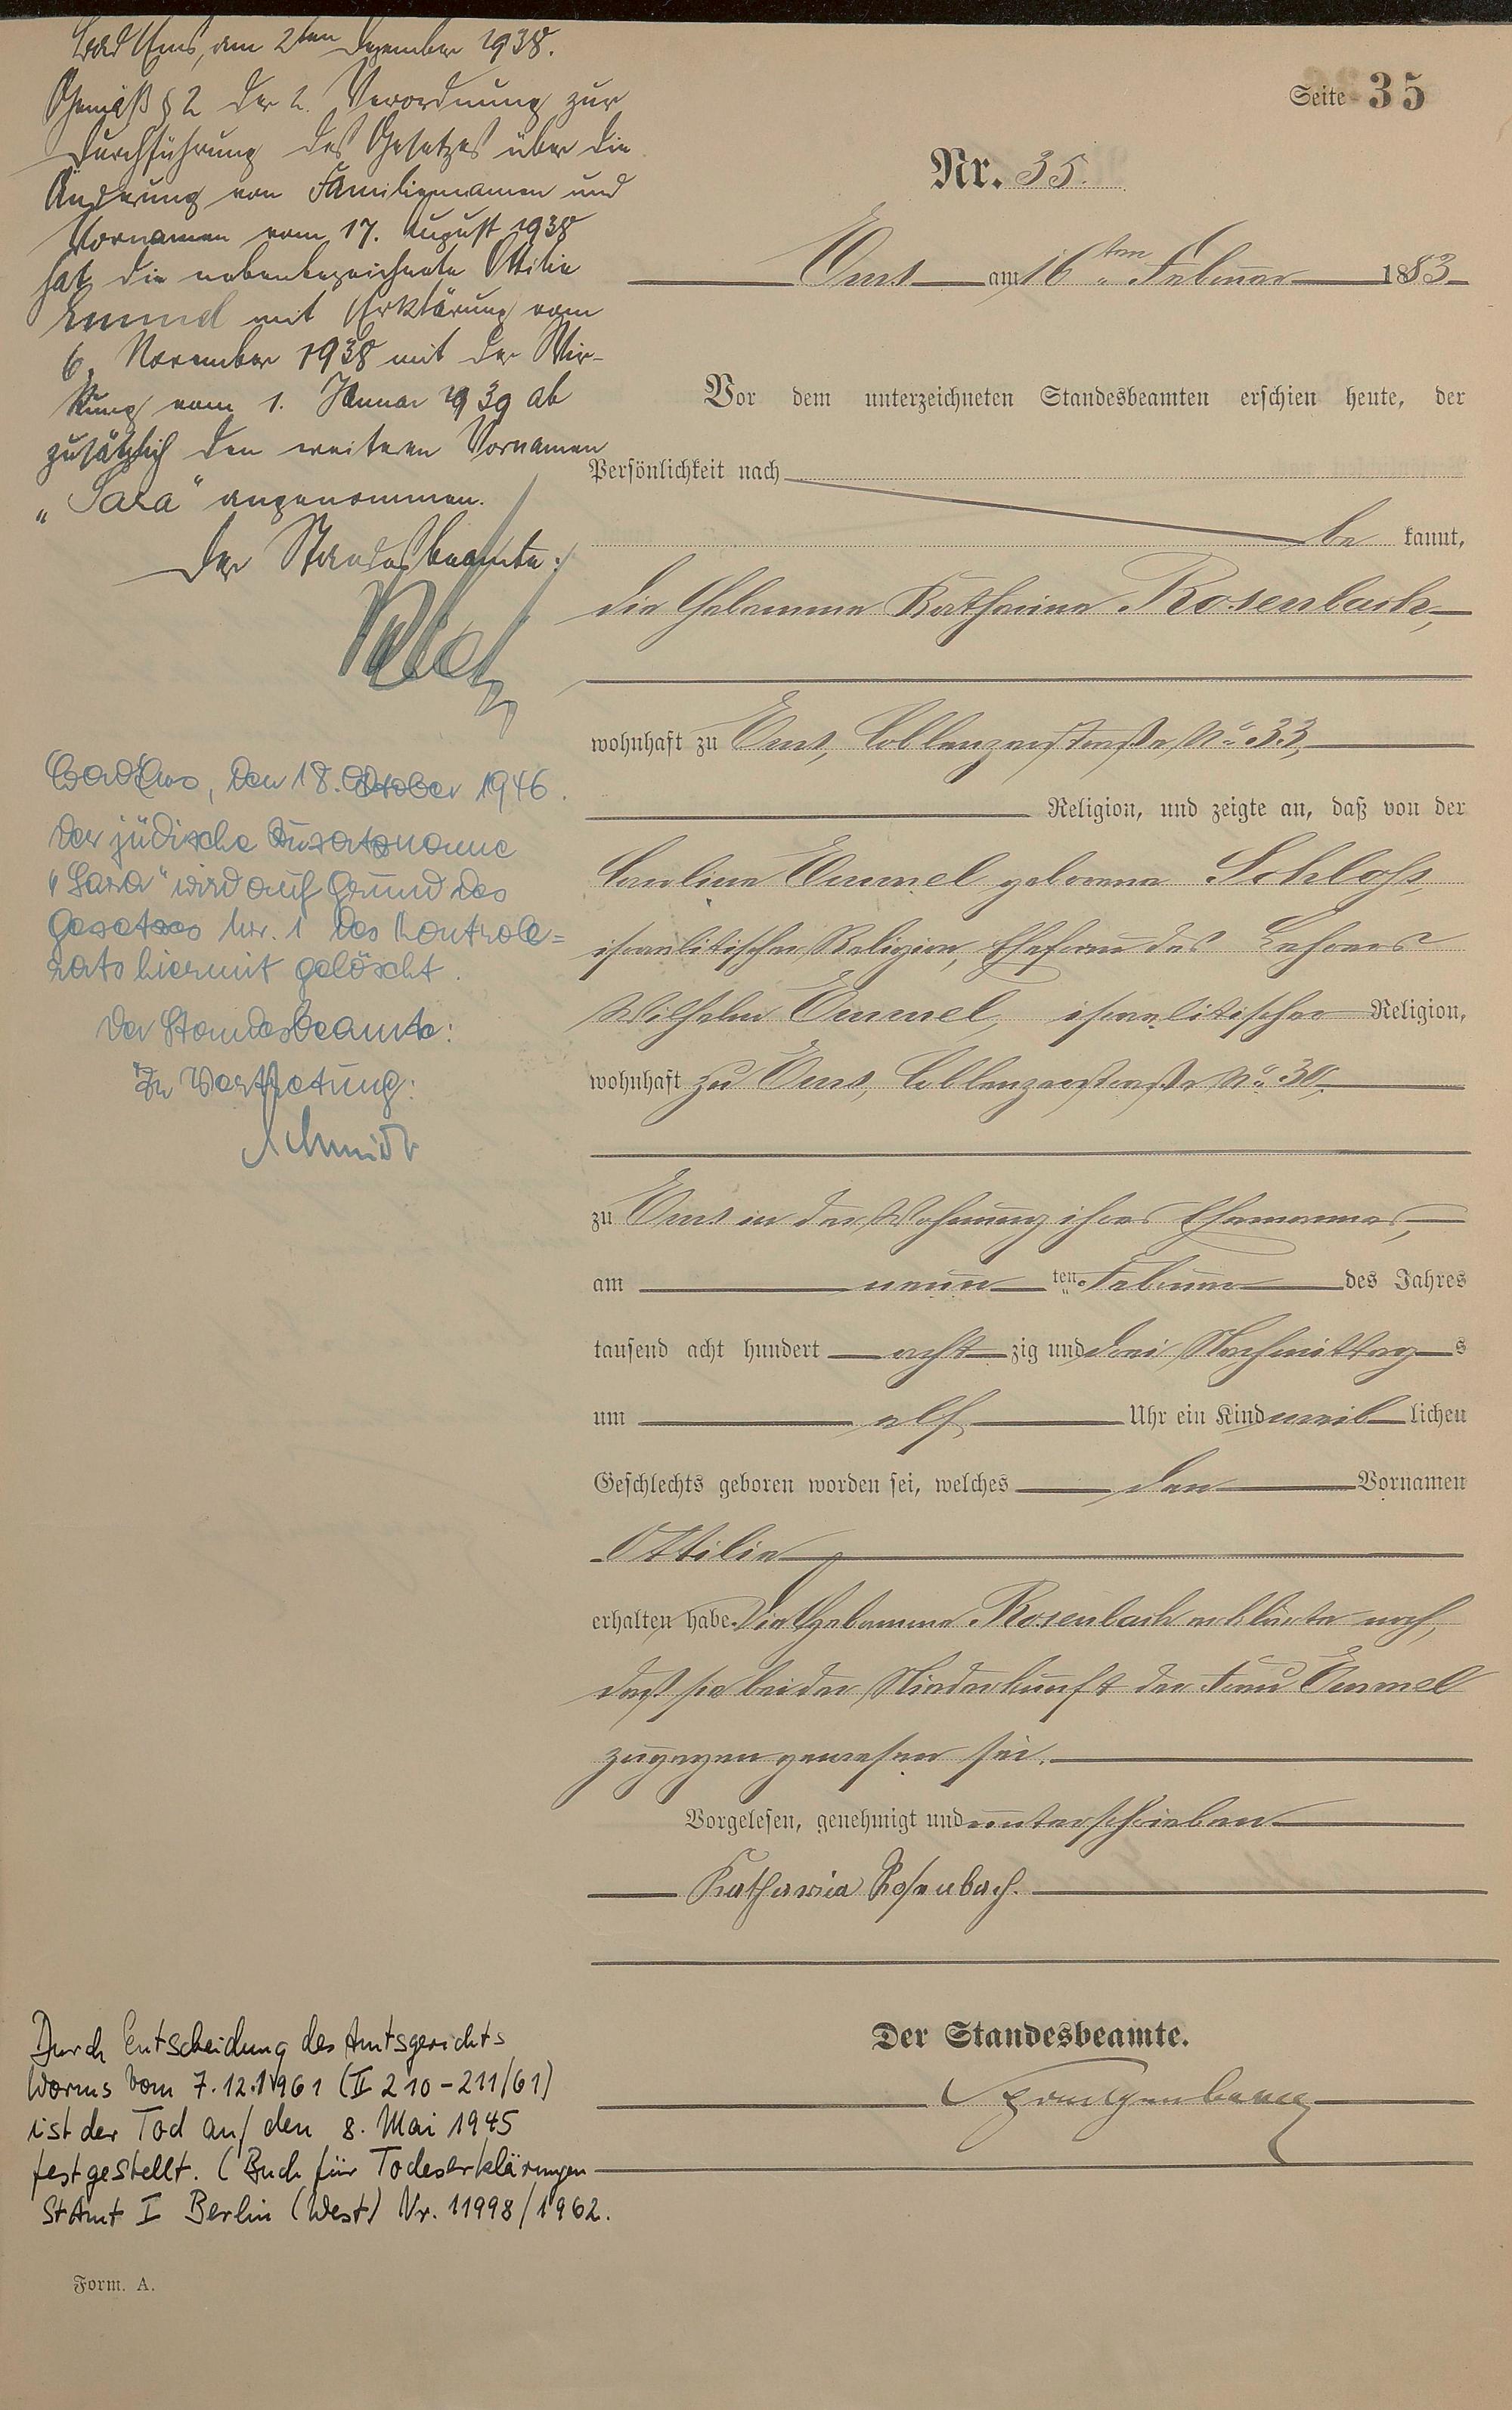 Bad Ems, am 2ten Dezember 1938.
Gemäß § 2 der 2. Verordnung zur
Durchführung des Gesetzes über die
Änderung von Familiennamen und
Vornamen vom 17. August 1938
hat die nebenbezeichnete Ottilie
Emmel mit Erklärung vom
6. November 1938 mit der Wir-
kung vom 1. Januar 1939 ab
zusätzlich den weiteren Vornamen
„Sara" angenommen.
Der Standesbeamte:
Bad Ems, den 18. Oktober 1946.
Der jüdische Zusatzname
"Sara" wird auf Grund des
Gesetzes Nr. 1 des Kontroll=
rats hiermit gelöscht.
Der Standesbeamte:
In Vertretung:
Schmidt
Durch Entscheidung des Amtsgerichts
Worms vom 7.12.1961 (II 210-211/61)
ist der Tod auf den 8. Mai 1945
festgestellt. (Buch für Todeserklärungen
StAmt I Berlin (West) Nr. 11998/1962.
Form. A.
Seite 35
Nr. 35.
Ems am 16ten Februar 1883
Vor dem unterzeichneten Standesbeamten erschien heute, der
Persönlichkeit nach
be kannt,
die Hebamme Katharina Rosenbach,
wohnhaft zu Ems, Coblenzerstraße No 33,
Religion, und zeigte an, daß von der
Caroline Emmel geborene Schloß,
israelitischer Religion, Ehefrau des Lehrers
Wilhelm Emmel, israelitischer Religion,
wohnhaft zu Ems, Coblenzerstraße No 30,
zu Ems in der Wohnung ihres Ehemannes,
am neun ten Februar des Jahres
tausend acht hundert acht zig und drei Nachmittag s
um elf Uhr ein Kind weib lichen
Geschlechts geboren worden sei, welches den Vornamen
Ottilie
erhalten habe. Die Hebamme Rosenbach erklärte noch,
daß sie bei der Niederkunft der Frau Emmel
zugegen gewesen sei.
Vorgelesen, genehmigt und unterschrieben
Katharina Rosenbach.
Der Standesbeamte.